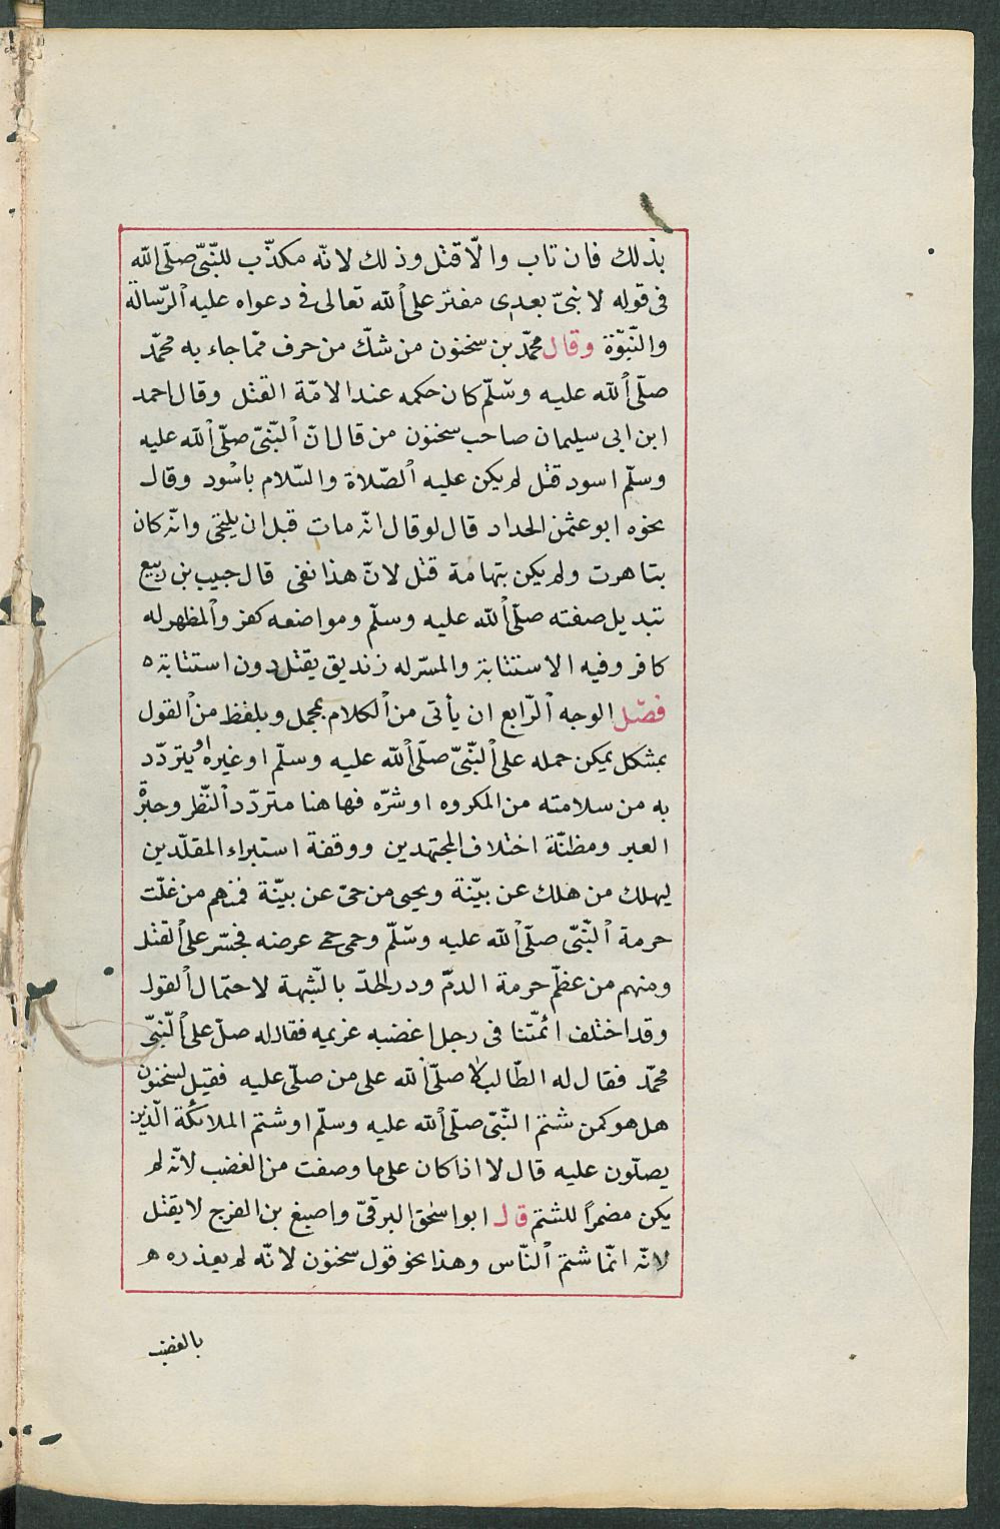 بذلك فان تاب والّا قتل وذلك لانّه مكذّب للنّبىّ صلّى الله
فى قوله لا نبىّ بعدى مفتر على الله تعالى فى دعواه عليه الرّسالة
والنّبوّة وقال محمّد بن سحنون من شكّ من حرف ممّا جاء به محمّد
صلّى الله عليه وسّلم كان حكمه عند الامّة القتل وقال احمد
ابن ابى سليمان صاحب سحنون من قال انّ النّبىّ صلّى الله عليه
وسلّم اسود قتل لم يكن عليه الصّلاة والسّلام باسود وقال
نحوه ابو عثمن الحداد قال لو قال انّه مات قبل ان يلتحى وانّه كان
بتاهرت ولم يكن بتهامة قتل لانّ هذا نفى قال حبيب بن ربيع
تبديل صفته صلّى الله عليه وسلّم ومواضعه كفر والمظهر له
كافر وفيه الاستتابة والمسّر له زنديق يقتل دون استتابة ه
فصّل الوجه الرّابع ان يأتى من الكلام بمجمل وبلفظ من القول
بمشكل يمكن حمله على النّبىّ صلّى الله عليه وسلّم او غيره او يتردّد
به من سلامته من المكروه او شرّه فهاهنا متردّد النّظر وحيرة
العبر ومظنّة اختلاف المجتهدين ووقفة استبراء المقلّدين
ليهلك من هلك عن بيّنة ويحيى من حىّ عن بيّنة فمنهم من غلّت
حرمة النّبىّ صلّى الله عليه وسّلم وحمى حمى عرضه فجسّر على القتل
ومنهم من عظّم حرمة الدمّ ودرا الحدّ بالشّبهة لاحتمال القول
وقد اختلف ائمّتنا فى رجل اغضبه غريمه فقال له صلّ على النّبىّ
محمّد فقال له الطّالب لا صلّى الله على من صلّى عليه فقيل لسحنون
هل هو كمن شتم النّبىّ صلّى الله عليه وسلّم او شتم الملائكة الّذين
يصلّون عليه قال لا اذا كان على ما وصفت من الغضب لانّه لم
يكن مضمرًا للشتم قال ابو اسحٰق البرقىّ واصبغ بن الفرج لا يقتل
لانّه انّما شتم النّاس وهذا نحو قول سحنون لانّه لم يعذره ه
بالغضب